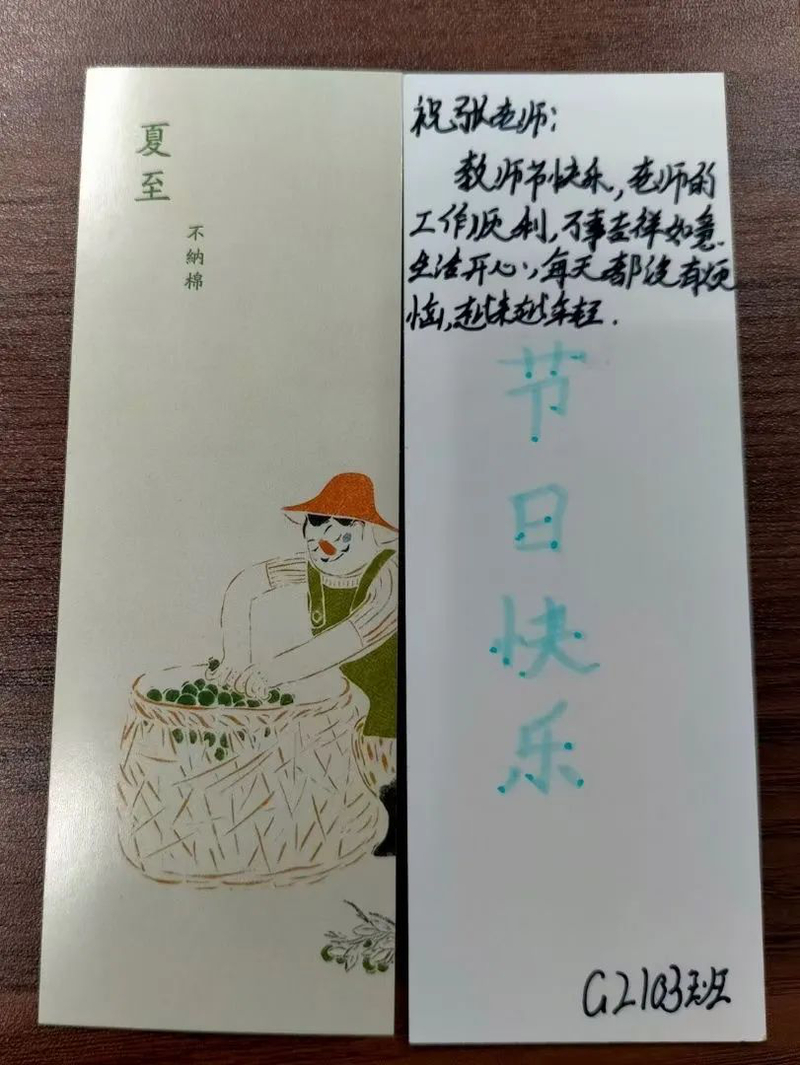 夏至
不納棉
祝张老师:
教师节快乐,老师的
工作顺利,万事吉祥如意.
生活开心,每天都没有烦
恼,越来越年轻.
节
日
快
乐
G2103班